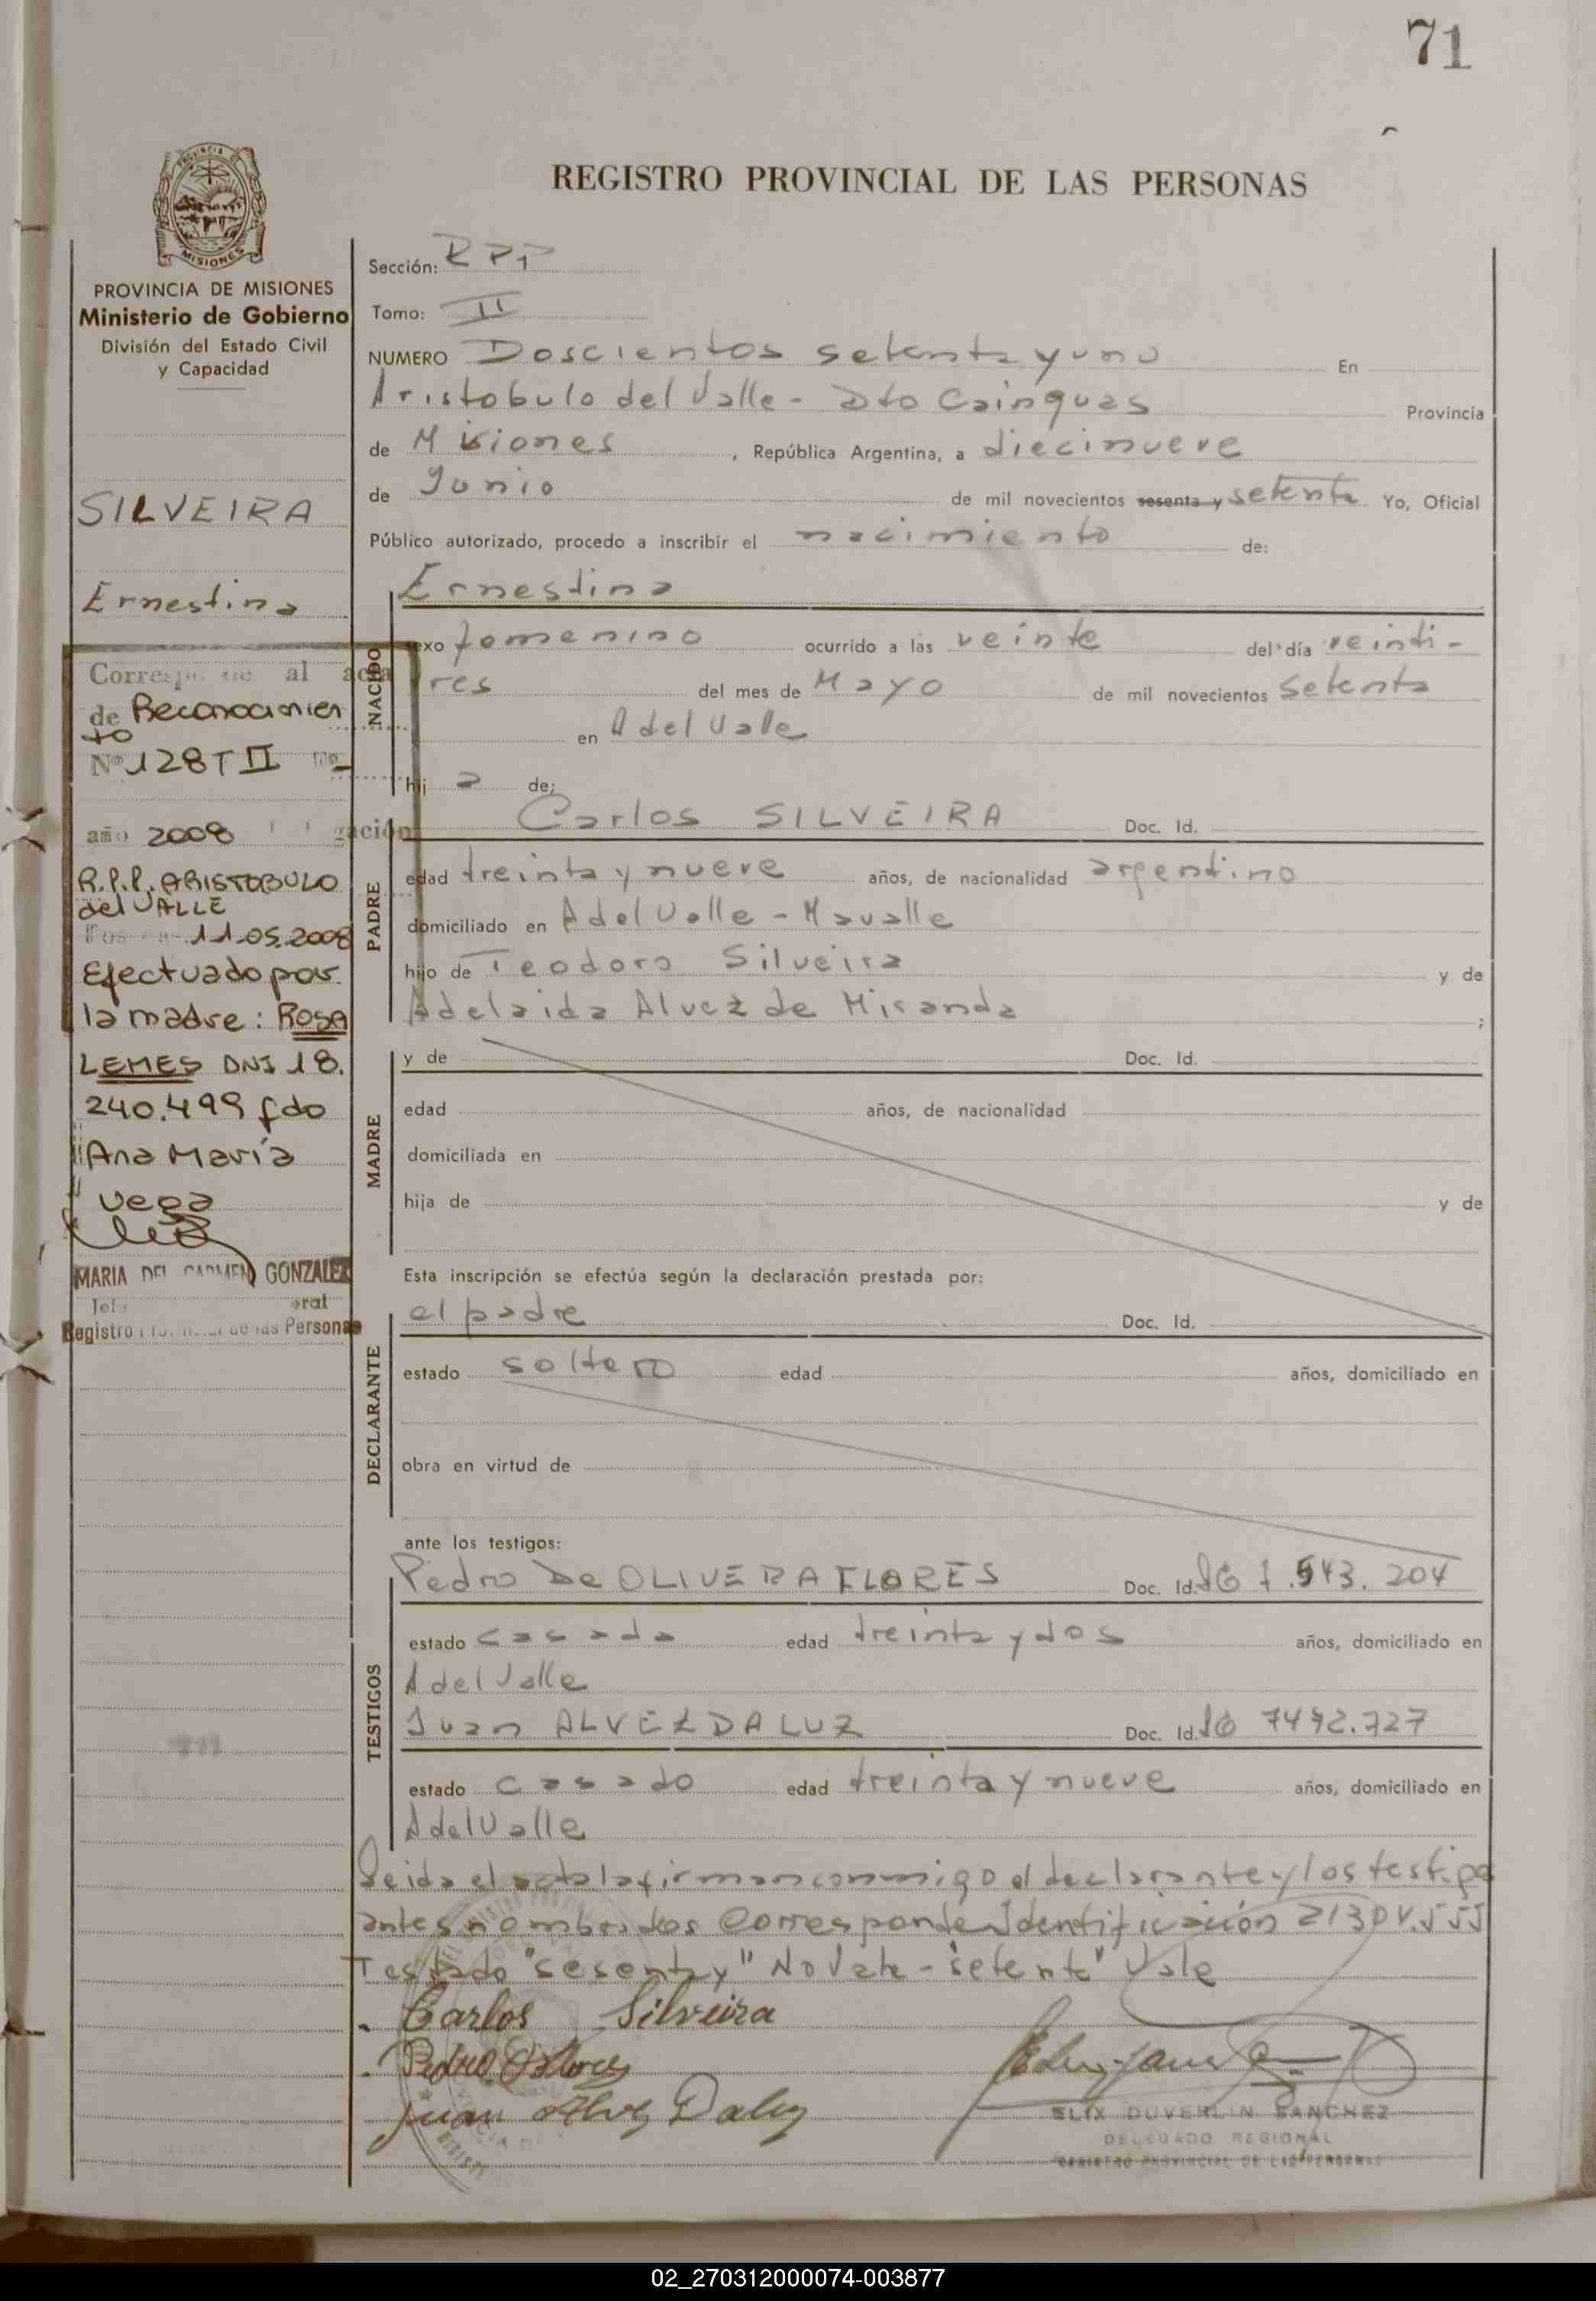 71
PROVINCIA DE
MISIONES
REGISTRO PROVINCIAL DE LAS PERSONAS
PROVINCIA DE MISIONES
Ministerio de Gobierno
División del Estado Civil
y Capacidad
SILVEIRA
Ernestina
al acta
de Reconocimien
to
Nº 128 T II
año 2008
R.P.P. ARISTOBULO
del VALLE
11.05.2008
Efectuado por
la madre: ROSA
LEMES DNI 18.
240.499 fdo
Ana María
Vega
MARIA DEL CARMEN GONZALEZ
Registro de las Personas
Sección: RPP
Tomo: II
NUMERO Doscientos setenta y uno En
Aristobulo del Valle - Dto Cainguas Provincia
de Misiones , República Argentina, a diecinueve
de Junio de mil novecientos sesenta y setenta Yo, Oficial
Público autorizado, procedo a inscribir el nacimiento de:
NACIDO
Ernestina
sexo femenino ocurrido a las veinte del día veinti-
tres del mes de Mayo de mil novecientos setenta
en A del Valle
hij a de:
PADRE
Carlos SILVEIRA Doc. Id.
edad treinta y nueve años, de nacionalidad argentino
domiciliado en A del Valle -
hijo de Teodoro Silveira y de
Adelaida Alvez de Miranda ;
MADRE
y de Doc. Id.
edad años, de nacionalidad
domiciliada en
hija de y de
Esta inscripción se efectúa según la declaración prestada por:
DECLARANTE
el padre Doc. Id.
estado soltero edad años, domiciliado en
obra en virtud de
ante los testigos:
TESTIGOS
Pedro De OLIVERA FLORES Doc. Id. .543.204
estado casado edad treinta y dos años, domiciliado en
A del Valle
Juan ALVEZ DA LUZ Doc. Id. 7492.727
estado casado edad treinta y nueve años, domiciliado en
A del Valle
Leida el acta la firman conmigo el declarante y los testigos
antes nombrados Corresponde Identificación
Testado "sesenta y" No Vale - "setenta" Vale
Carlos Silveira
Juan Alvez Daluz
ELIX DUVERLIN SANCHEZ
DELEGADO REGIONAL
REGISTRO PROVINCIAL DE LAS PERSONAS
02_270312000074-003877